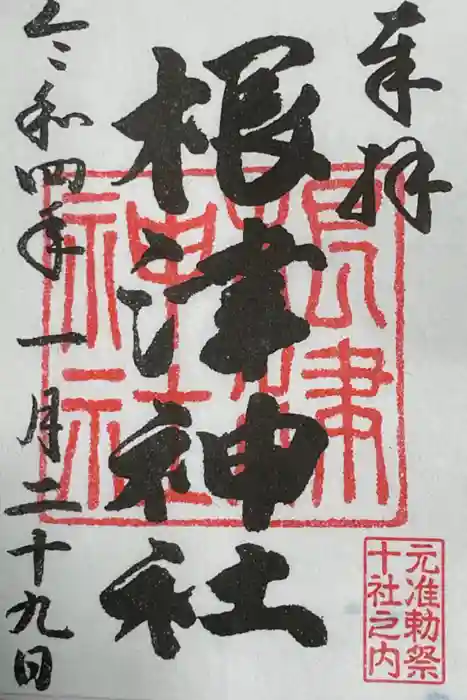 奉拝
根津神社
令和四年一月二十九日
根津
神社
元准勅祭
十社之内